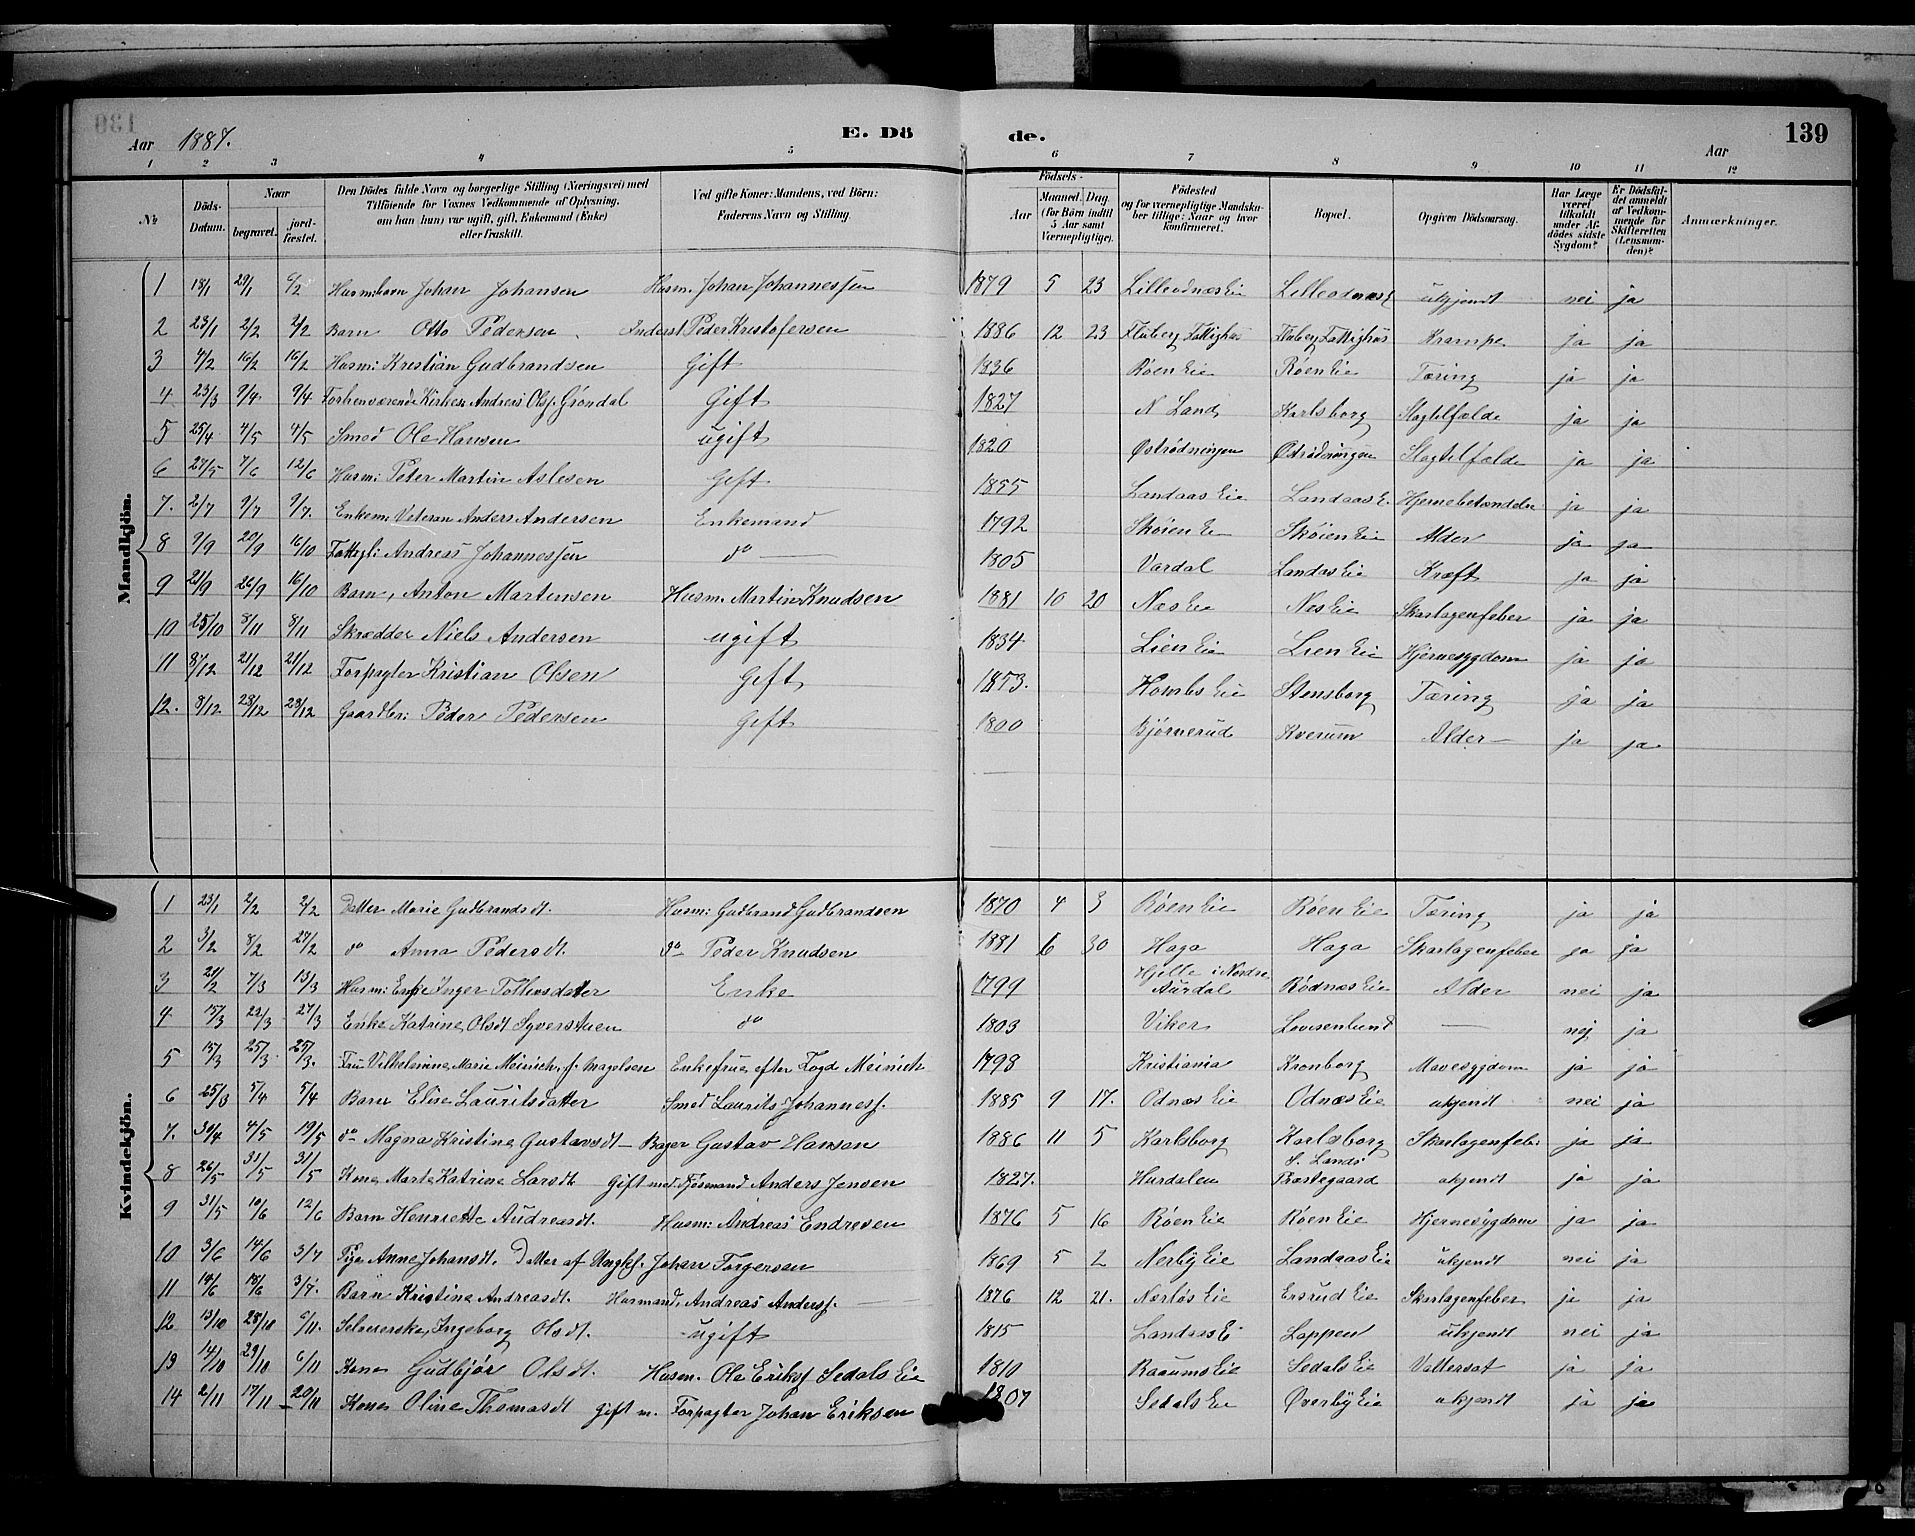 Aar 1887. E. Dö de. Aar 139
1 2 3 4 5 6 7 8 9 10 11 12
№ Döds-Datum. Naar begravet. jord-fæstet. Den Dödes fulde Navn og borgerlige Stilling (Næringsvei) med Tilföiende for Voxnes Vedkommende af Oplysning, om han (hun) var ugift, gift, Enkemand (Enke) eller fraskilt. Ved gifte Koner: Mandens, ved Börn: Faderens Navn og Stilling. Födsels- Aar Maaned. Dag (for Börn indtil 5 Aar samt Værnepligtige). Födested og for værnepligtige Mandskaber tillige: Naar og hvor konfirmeret. Bopæl. Opgiven Dödsaarsag. Har Læge været tilkaldt under Afdödes sidste Sygdom? Er Dödsfaldet anmeldt af Vedkommende for Skifteretten (Lensmanden)? Anmærkninger.
Mandkjön.
1 18/1 29/1 6/2 Husm:barn Johan Johansen Husm. Johan Johannessen 1879 5 23 Lilleodnæs Eie Lilleodnæs E ukjendt nei ja
2 23/1 2/2 2/2 Barn Otto Pedersen Inderst Peder Kristofersen 1886 12 23 Fluberg Fattighus Fluberg Fattighus Krampe ja ja
3 4/2 16/2 16/2 Husm: Kristian Gudbrandsen Gift 1836 Röen Eie Röen Eie Tæring ja ja
4 23/3 9/4 9/4 Forhenværende Andreas Ols. Gröndal Gift 1827 N Land Karlsborg Slagtilfælde ja ja
5 25/4 4/5 4/5 Smed Ole Hansen ugift 1820 Østrødningen Slagtilfælde ja ja
6 27/5 7/6 12/6 Husm: Peter Martin Aslesen Gift 1855 Landaas Eie Landaas E. Hjernebetændelse ja ja
7. 2/7 9/7 9/7. Enkem: Veteran Anders Andersen Enkemand 1792 Skøien E Skøien Eie Alder ja ja
8 9/9 20/9 16/10 Fattigl: Andreas Johannessen do 1805 Vardal Landas Eie Kræft ja ja
9 21/9 26/9 16/10 Barn, Anton Martinsen Husm. Martin Knudsen 1881 10 20 Næs Eie Nes Eie Skarlagenfeber ja ja
10 25/10 8/11 8/11 Skrædder Niels Andersen ugift 1834 Lien Eie Lien Eie Hjernesygdom ja ja
11 8/12 21/12 21/12 Forpagter Kristian Olsen Gift 1853. Hombs Eie Stensborg Tæring ja ja
12. 8/12 23/12 23/12 Gaardbr: Peder Pedersen Gift 1800 Bjørnerud Kverum Alder ja ja
Kvindekjön.
1 23/1 2/2 2/2 Datter Marie Gudbrandsdt. Husm: Gudbrand Gudbrandsen 1870 4 3 Røen Eie Røen Eie Tæring ja ja
2 3/2 8/2 27/2 do Anna Pedersdt. do Peder Knudsen 1881 6 30 Haga Haga Skarlagenfeber ja ja
3 21/2 7/3 13/3 Husm: Enke Inger Tollevsdatter Enke 1799 Hjelle i Nordre Aurdal Rødnæs Eie Alder nei ja
4 15/3 22/3 27/3 Enke Katrine Olsdt Syverstuen do 1803 Viker Lovisenlund — nej ja
5 15/3 25/3 25/3. Fru Vilhelmine Marie Meinich, f. Magelsen Enkefrue efter Fogd Meinich 1798 Kristiania Kronborg Mavesygdom ja ja
6 25/3 5/4 5/4 Barn Elise Lauritsdatter Smed Laurits Johannesf. 1885 9 17. Odnæs Eie Odnæs Eie ukjendt nei ja
7. 30/4 4/5 19/5 do Magna Kristine Gustavsdt Bager Gustav Hansen 1886 11 5 Karlsborg Karlsborg Skarlagenfeb: ja ja
8 26/5 31/5 31/5 Kone Marte Katrine Larsdt Gift med Fjøsmand Anders Jensen 1827. Hurdalen S. Lands Præstegaard ukjendt ja ja
9 31/5 10/6 12/6 Barn Henriette Andreasdt. Husm: Andreas Endresen 1876 5 16 Røen Eie Røen Eie Hjernesygdom ja ja
10 3/6 14/6 3/7 Pige Anne Johansdt. Datter af Ungkf. Johan Torgersen 1869 5 2 Nerby Eie Landaas Eie ukjendt nei ja
11 14/6 18/6 3/7. Barn Kristine Andreasdt. Husmand, Andreas Andersf. 1876 12 21. Nærløs Eie Ersrud Eie Skarlagenfeber ja ja
12 13/10 28/10 6/11. Selveierske, Ingeborg Olsdt. ugift 1815 Landaas E Lappen ukjendt nei ja
13 14/10 29/10 6/11 Kone Gudbjør Olsdt. Husm. Ole Eriksf Sedals Eie 1810 Raaums Eie Sedals Eie Vattersot ja ja
14 2/11 17/11 20/11 Kone Oline Thomasdt Gift m. Forpagter Johan Eriksen 1807 Sedals Eie Øverby Eie ukjendt ja ja